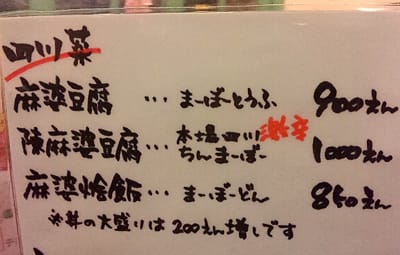 四川菜
麻婆豆腐 … まーぼーとうふ 900えん
陳麻婆豆腐 … 本場四川 激辛 ちんまーぼー 1000えん
麻婆燴飯 … まーぼーどん 850えん
※丼の大盛りは200えん増しです